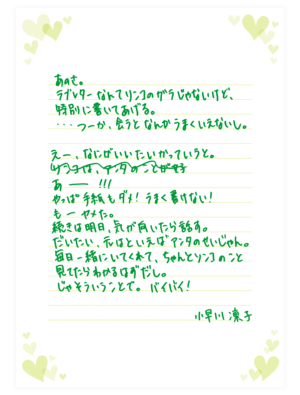 あのさ。
ラブレターなんてリンコのガラじゃないけど、
特別に書いてあげる。
・・・つーか、会うとなんかうまくいえないし。
えー、なにがいいたいかっていうと。
リンコは、アンタのことが好
あ―― !!!
やっぱ手紙もダメ！うまく書けない！
もーヤメた。
続きは明日、気が向いたら話す。
だいたい、元はといえばアンタのせいじゃん。
毎日一緒にいてくれて、ちゃんとリンコのこと
見てたらわかるはずだし。
じゃそういうことで。バイバイ！
小早川凛子